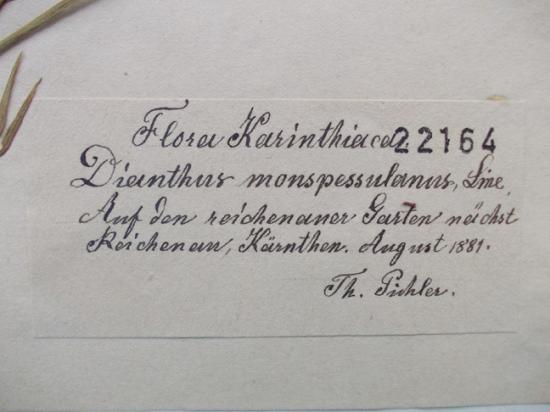 Flora Karinthiaca. 22164
Dianthus monspessulanus, Line,
Auf den reichenauer Garten nächst
Reichenau, Kärnthen. August 1881.
Th. Pichler.